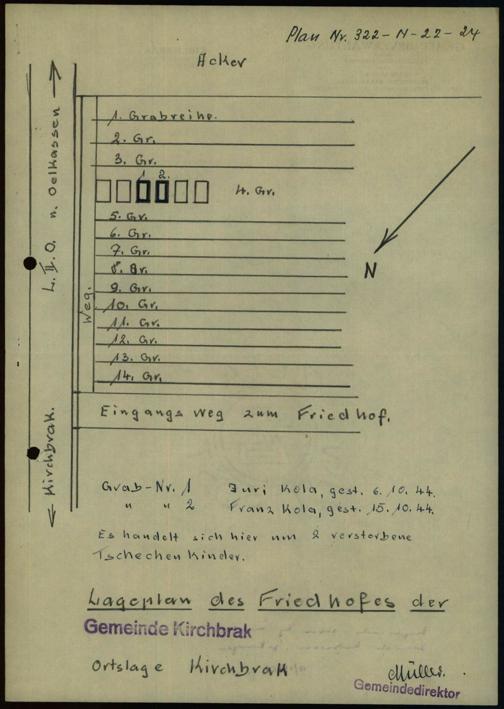 Plan Nr. 322-N-22-24
Acker
L.II.O. n. Oelkassen
Kirchbrak.
Weg.
1. Grabreihe.
2. Gr.
3. Gr.
1 2.
4. Gr.
5. Gr.
6. Gr.
7. Gr.
8. Gr.
9. Gr.
10. Gr.
11. Gr.
12. Gr.
13. Gr.
14. Gr.
N
Eingangsweg zum Friedhof.
Grab-Nr. 1 Juri Kola, gest. 6. 10. 44.
" " 2 Franz Kola, gest. 15. 10. 44.
Es handelt sich hier um 2 verstorbene
Tschechen Kinder.
Lageplan des Friedhofes der
Gemeinde Kirchbrak
Ortslage Kirchbrak
Müller.
Gemeindedirektor